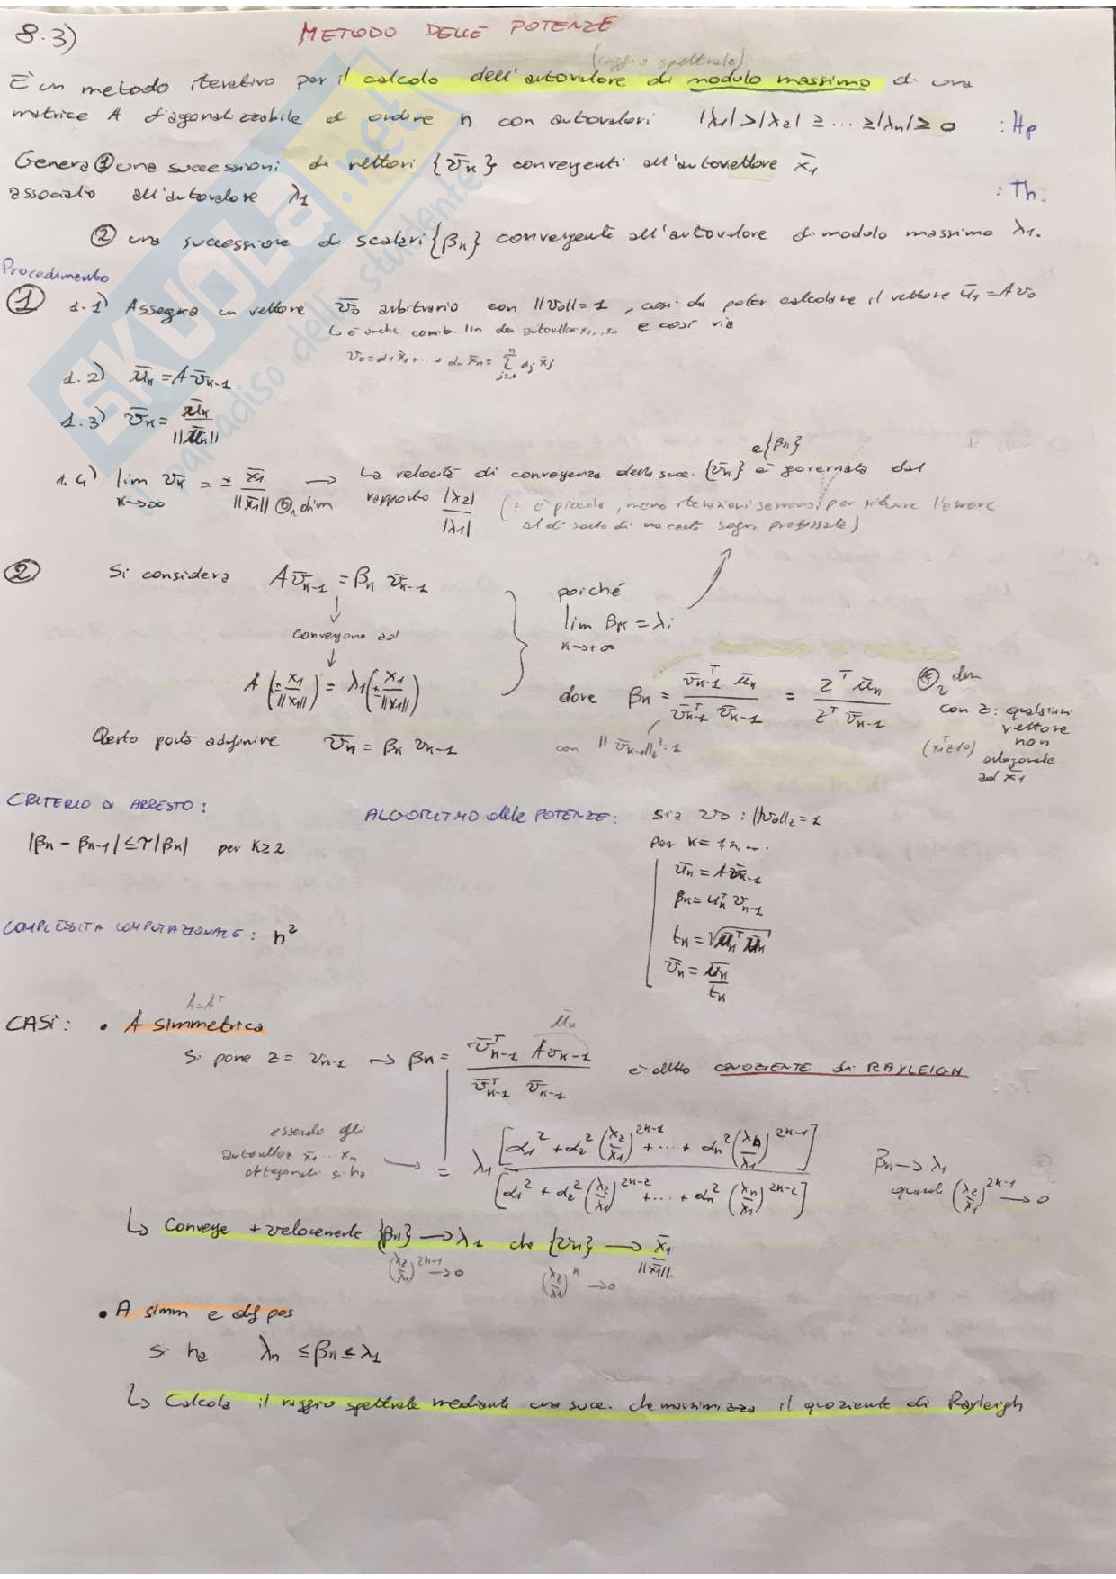 8.3) METODO DELLE POTENZE
(raggio spettrale)
È un metodo iterativo per il calcolo dell'autovalore di modulo massimo di una
matrice A diagonalizzabile di ordine n con autovalori |λ1|>|λ2| ≥ ... ≥|λn|≥ 0 : Hp
Genera ① una successioni di vettori {v̄k} convergenti all'autovettore x̄1
associato all'autovalore λ1 : Th.
② una successione di scalari {βk} convergente all'autovalore di modulo massimo λ1.
Procedimento
① 1.1) Assegna un vettore v̄0 arbitrario con ||v0||=1, così da poter calcolare il vettore ū1=Av0
↳ è anche comb lin e così via
v0=α1x̄1+...+αnx̄n= Σ αj x̄j
1.2) ūk=Av̄k-1
1.3) v̄k= ūk/||ūk||
e{βk}
1.4) lim k→∞ v̄k = ± x̄1/||x̄1|| ⊛1 dim → La velocità di convergenza della succ. {v̄k} è governata dal
rapporto |λ2|/|λ1| (: è piccolo, meno iterazioni servono per ridurre l'errore
al di sotto di una certa soglia prefissata)
② Si considera Av̄k-1 = βk v̄k-1
poiché
lim k→+∞ βk = λi
convergono ad
A(± x1/||x1||) = λ1(± x1/||x1||)
dove βk = v̄ᵀk-1 ūk / v̄ᵀk-1 v̄k-1 = zᵀ ūk / zᵀ v̄k-1 ⊛2 dim
con z: qualsiasi
vettore
non
ortogonale
ad x̄1
Questo porta a definire v̄k = βk vk-1
con || v̄k-1||2²=1
CRITERIO DI ARRESTO:
|βk - βk-1| ≤ τ|βk| per k≥2
ALGORITMO delle POTENZE: sia v0 : ||v0||2=1
per k=1,2,...
ūk = Av̄k-1
βk=uᵀk v̄k-1
tk=√ūkᵀūk
v̄k = ūk/tk
COMPLESSITÀ COMPUTAZIONALE: n²
A=Aᵀ
CASI: • A simmetrica
ūk
Si pone z = vk-1 → βk = v̄ᵀk-1 Avk-1 / v̄ᵀk-1 v̄k-1 è detto QUOZIENTE di RAYLEIGH
essendo gli
autovettor x̄1...xn
ortogonali si ha
→ = λ1 [α1²+α2²(λ2/λ1)^2k-1+...+αn²(λn/λ1)^2k-1] / [α1²+α2²(λ2/λ1)^2k-2+...+αn²(λn/λ1)^2k-2]
βk→λ1
quando (λ2/λ1)^2k-1→0
↳ Converge + velocemente {βk}→λ1 che {vk}→ x̄1/||x̄1||
(λ2/λ1)^2k-1→0 (λ2/λ1)^k→0
• A simm e def pos
si ha λn ≤βk≤ λ1
↳ Calcola il raggio spettrale mediante una succ. che massimizza il quoziente di Rayleigh
SKUOLA.net
paradiso dello studente